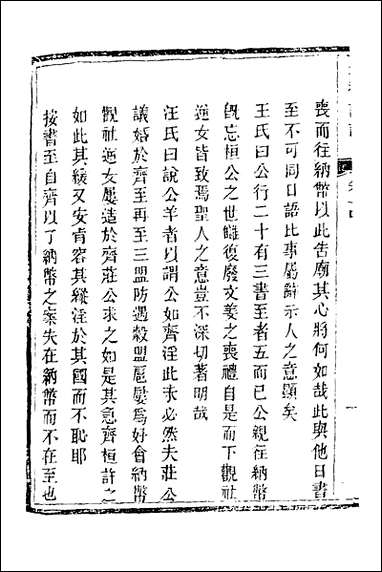 喪而往納幣以此告廟其心將何如哉此與他日書
至不可同日語比事屬辭示人之意顯矣
王氏曰公行二十有三書至者五而已公親往納幣
旣忘桓公之世讎復廢文姜之喪禮自是而下觀社
逆女皆致焉聖人之意豈不深切著明哉
汪氏曰說公羊者以謂公如齊淫此未必然夫莊公
議婚於齊至再至三盟防遇穀盟扈屢爲好會納幣
觀社逆女屢造於齊莊公求之如是其急齊桓許之
如此其緩又安肯容其縱淫於其國而不恥耶
按書至自齊以了納幣之案失在納幣而不在至也